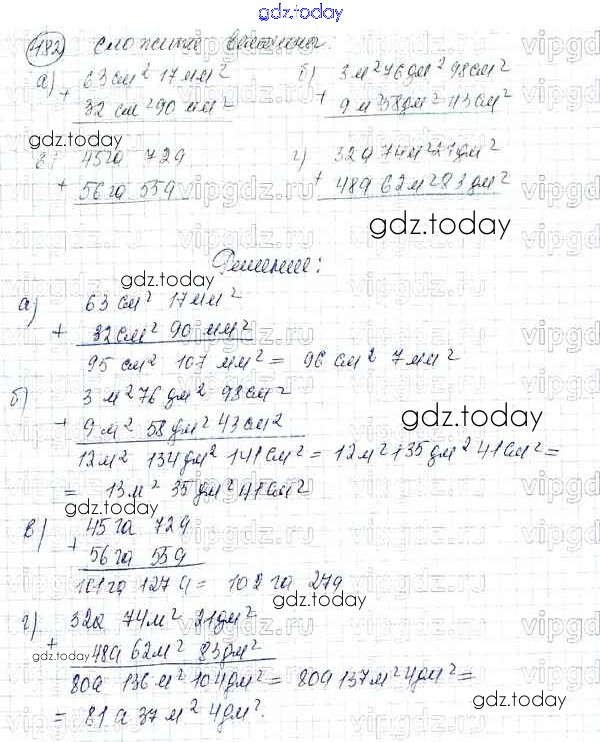 gdz.today
182) сложите величины:
а) 63 см² 17 мм² б) 3 м² 76 дм² 98 см²
+ 32 см² 90 мм² + 9 м² 58 дм² 43 см²
gdz.today
в) 45 га 72 а г) 32 а 74 м² 21 дм²
+ 56 га 55 а + 48 а 62 м² 83 дм²
gdz.today
Решение:
gdz.today
а) 63 см² 17 мм²
+ 32 см² 90 мм²
95 см² 107 мм² = 96 см² 7 мм²
б) 3 м² 76 дм² 98 см²
gdz.today
+ 9 м² 58 дм² 43 см²
12 м² 134 дм² 141 см² = 12 м² 135 дм² 41 см² =
= 13 м² 35 дм² 41 см²
gdz.today
в) 45 га 72 а
+ 56 га 55 а
101 га 127 а = 102 га 27 а
gdz.today
г) 32 а 74 м² 21 дм²
+ 48 а 62 м² 83 дм²
gdz.today
80 а 136 м² 104 дм² = 80 а 137 м² 4 дм² =
= 81 а 37 м² 4 дм².
gdz.today